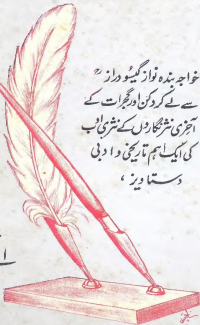 خواجہ بندہ نواز گیسو دراز ؒ
سے لے کر دکن اور گجرات کے
آخری نثر نگاروں کے نثری ادب
کی ایک اہم تاریخی و ادبی
دستاویز ،